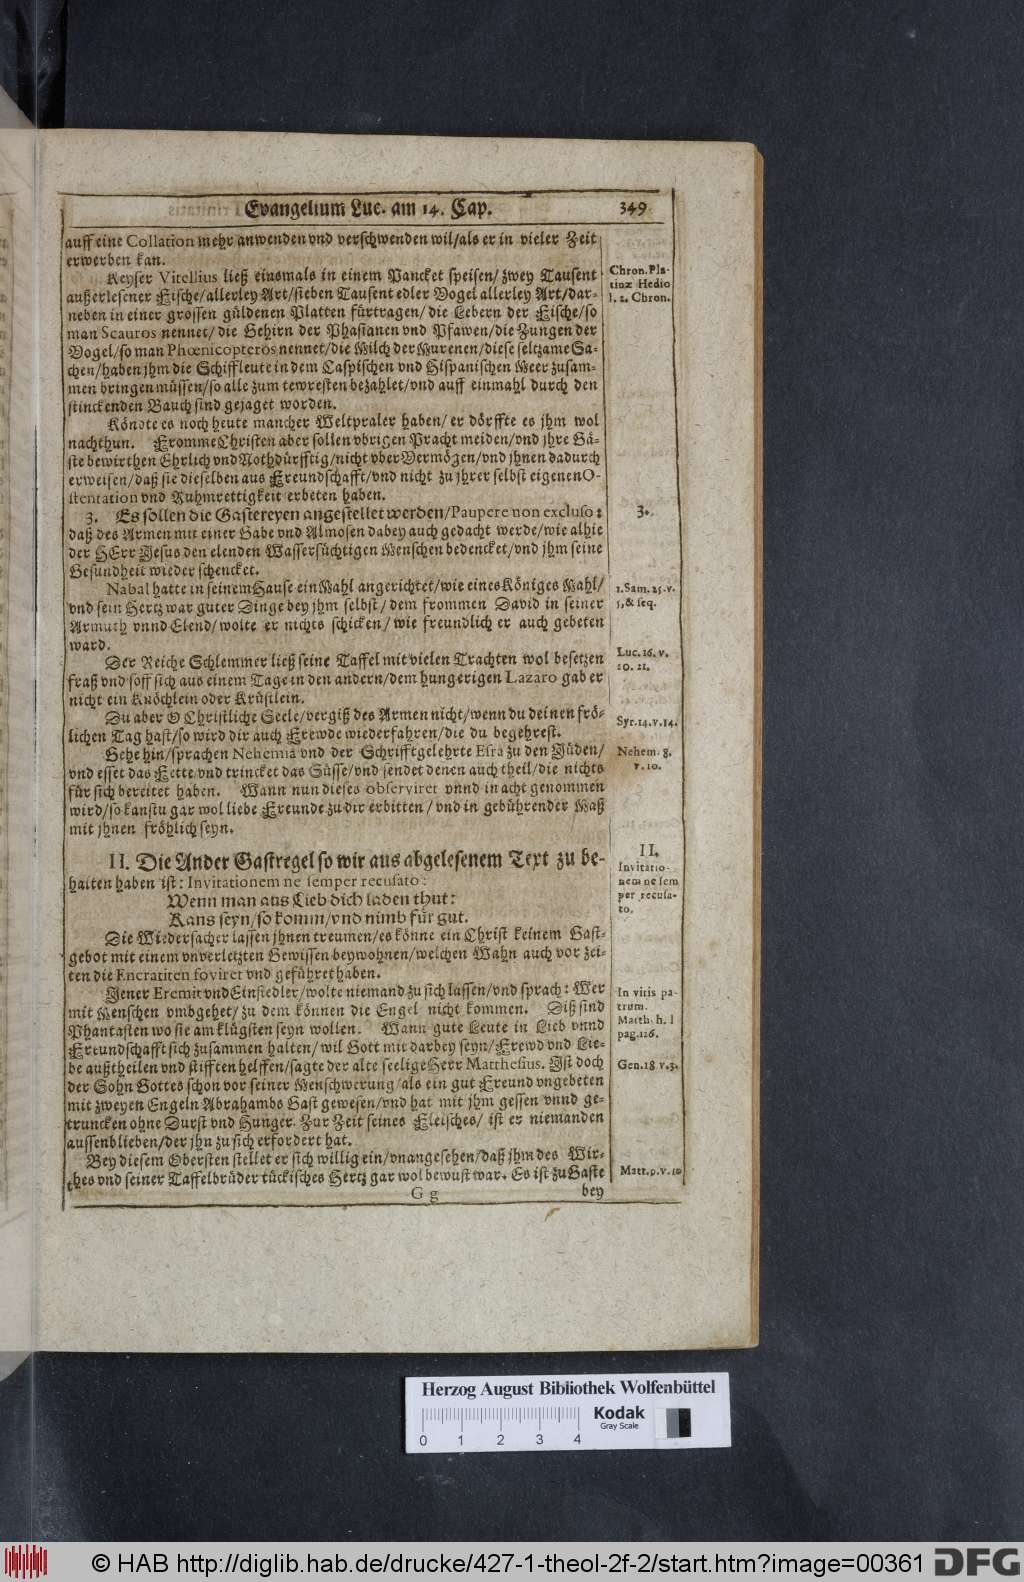 Evangelium Luc. am 14. Cap. 349
auff eine Collation mehr anwenden vnd verschwenden wil/als er in vieler Zeit
erwerben kan.
Keyser Vitellius ließ einsmals in einem Pancket speisen/ zwey Tausent
außerlesener Fische/allerley Art/sieben Tausent edler Vogel allerley Art/dar-
neben in einer grossen güldenen Platten fürtragen/ die Lebern der Fische/so
man Scauros nennet/ die Gehirn der Phasianen vnd Pfawen/die Zungen der
Vogel/so man Phœnicopteros nennet/die Milch der Murenen/diese seltzame Sa-
chen/haben jhm die Schiffleute in dem Caspischen vnd Hispanischen Meer zusam-
men bringen müssen/so alle zum tewresten bezahlet/vnd auff einmahl durch den
stinckenden Bauch sind gejaget worden.
Chron. Pla-
tinæ Hedio
l. 2. Chron.
Köndte es noch heute mancher Weltpraler haben/ er dörffte es jhm wol
nachthun. Fromme Christen aber sollen vbrigen Pracht meiden/vnd jhre Gä-
ste bewirthen Ehrlich vnd Nothdürfftig/nicht vber Vermögen/vnd jhnen dadurch
erweisen/daß sie dieselben aus Freundschafft/vnd nicht zu jhrer selbst eigenen O-
stentation vnd Ruhmrettigkeit erbeten haben.
3. Es sollen die Gastereyen angestellet werden/Paupere non excluso:
daß des Armen mit einer Gabe vnd Almosen dabey auch gedacht werde/wie alhie
der HErr Jesus den elenden Wassersüchtigen Menschen bedencket/vnd jhm seine
Gesundheit wieder schencket.
3.
Nabal hatte in seinem Hause ein Mahl angerichtet/wie eines Königes Mahl/
vnd sein Hertz war guter Dinge bey jhm selbst/ dem frommen David in seiner
Armuth vnnd Elend/wolte er nichts schicken/ wie freundlich er auch gebeten
ward.
1. Sam. 25. v.
5, & seq.
Der Reiche Schlemmer ließ seine Taffel mit vielen Trachten wol besetzen
fraß vnd soff sich aus einem Tage in den andern/dem hungerigen Lazaro gab er
nicht ein Knöchlein oder Krüstlein.
Luc. 16. v.
20. 21.
Du aber O Christliche Seele/vergiß des Armen nicht/wenn du deinen frö-
lichen Tag hast/so wird dir auch Frewde wiederfahren/die du begehrest.
Syr. 14. v. 14.
Gehe hin/sprachen Nehemia vnd der Schrifftgelehrte Esra zu den Jüden/
vnd esset das Fette/vnd trincket das Süsse/vnd sendet denen auch theil/die nichts
für sich bereitet haben. Wann nun dieses observiret vnnd in acht genommen
wird/so kanstu gar wol liebe Freunde zu dir erbitten/ vnd in gebührender Maß
mit jhnen fröhlich seyn.
Nehem. 8.
v. 10.
II. Die Ander Gastregel so wir aus abgelesenem Text zu be-
halten haben ist: Invitationem ne semper recusato:
Wenn man aus Lieb dich laden thut:
Kans seyn/so komm/vnd nimb für gut.
II.
Invitatio-
nem ne sem
per recusa-
to.
Die Wiedersacher lassen jhnen treumen/es könne ein Christ keinem Gast-
gebot mit einem vnverletzten Gewissen beywohnen/welchen Wahn auch vor zei-
ten die Encratiten foviret vnd geführet haben.
Jener Eremit vnd Einsiedler/wolte niemand zu sich lassen/vnd sprach: Wer
mit Menschen vmbgehet/ zu dem können die Engel nicht kommen. Diß sind
Phantasten wo sie am klügsten seyn wollen. Wann gute Leute in Lieb vnnd
Freundschafft sich zusammen halten/ wil Gott mit darbey seyn/ Frewd vnd Lie-
be außtheilen vnd stifften helffen/sagte der alte seelige Herr Matthesius. Ist doch
der Sohn Gottes schon vor seiner Menschwerung/als ein gut Freund vngebeten
mit zweyen Engeln Abrahambs Gast gewesen/vnd hat mit jhm gessen vnnd ge-
truncken ohne Durst vnd Hunger. Zur Zeit seines Fleisches/ ist er niemanden
aussenblieben/der jhn zu sich erfordert hat.
In vitis pa-
trum.
Matth. h. l
pag. 126.
Gen. 18 v. 3.
Bey diesem Obersten stellet er sich willig ein/vnangesehen/daß jhm des Wir-
thes vnd seiner Taffelbrüder tückisches Hertz gar wol bewust war. Es ist zu Gaste
Matt. 9. v. 10
G g bey
Herzog August Bibliothek Wolfenbüttel
Kodak
Gray Scale
0 1 2 3 4
© HAB http://diglib.hab.de/drucke/427-1-theol-2f-2/start.htm?image=00361 DFG